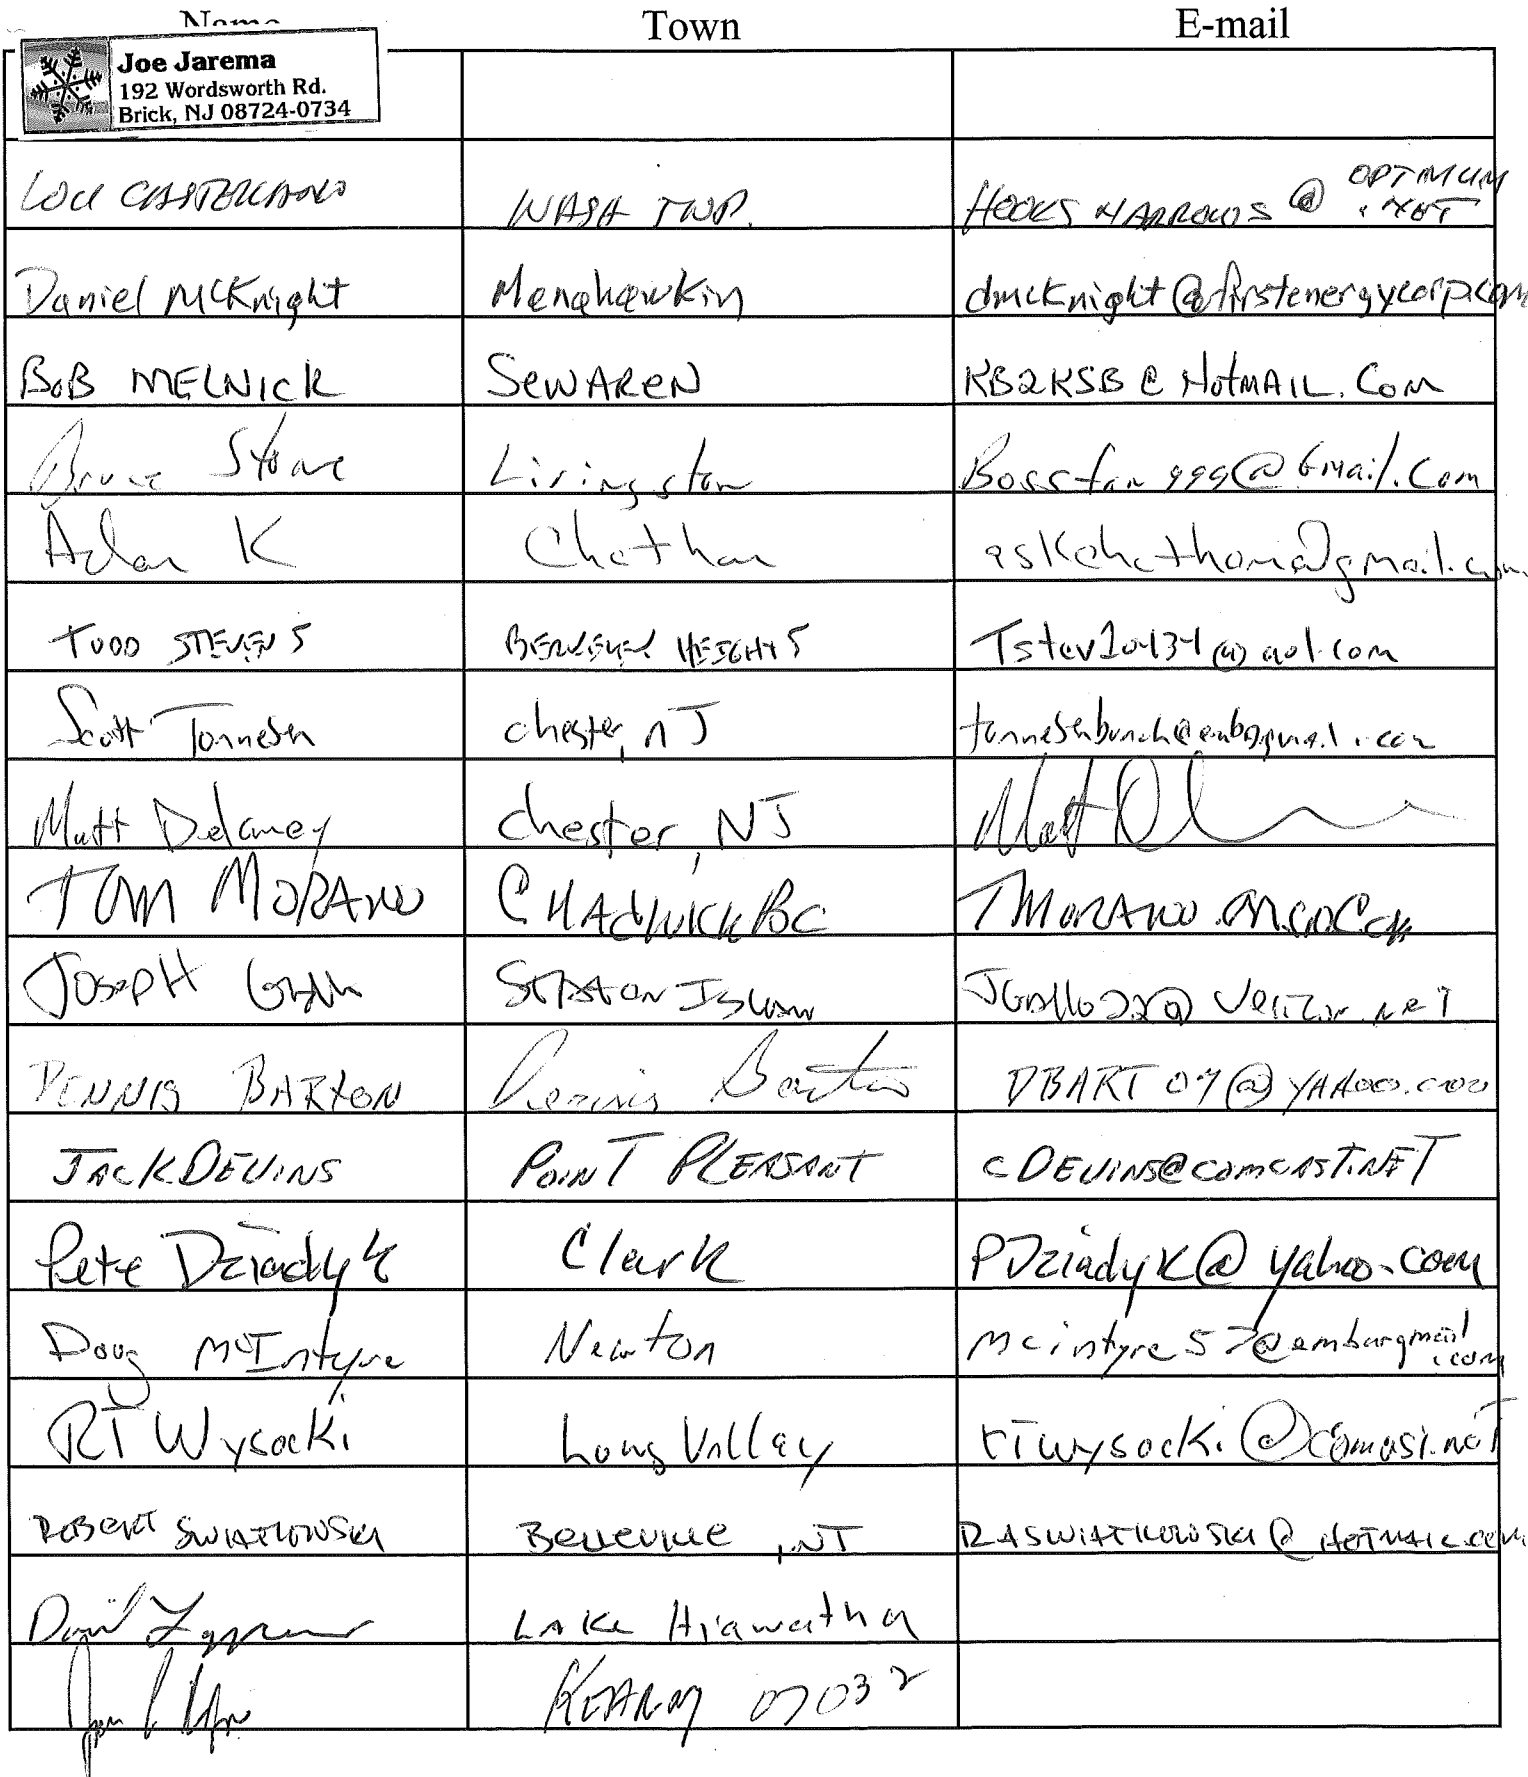 Name Town E-mail
Joe Jarema
192 Wordsworth Rd.
Brick, NJ 08724-0734
LOU CASTELLANO WASH TWP. HOOKSNARROWS@OPTIMUM
.NET
Daniel McKnight Manahawkin dmcknight@firstenergycorp.com
BOB MELNICK SEWAREN KB2KSB@HOTMAIL.COM
Bruce Stone Livingston Bossfan999@Gmail.Com
Adam K Chatham askchatham@gmail.com
TODD STEVENS BERKELEY HEIGHTS Tstev10434@aol.com
Scott Tonnesen chester, NJ
Matt Delaney chester, NJ
TOM MORANO CHADWICK BC
JOSEPH STATON ISLAND JGallo22@Verizon.net
DENNIS BARTON Dennis Barton DBART07@YAHOO.COM
JACK DEVINS POINT PLEASANT CDEVINS@COMCAST.NET
Pete Dziadyk Clark PDziadyk@yahoo.com
Doug McIntyre Newton mcintyre57@embarqmail
.com
RT Wysocki Long Valley rtwysocki@comast.net
ROBERT SWIATKOWSKI BELLEVILLE, NJ RASWIATKOWSKI@HOTMAIL.COM
David LAKE Hiawatha
KEARNY 07032